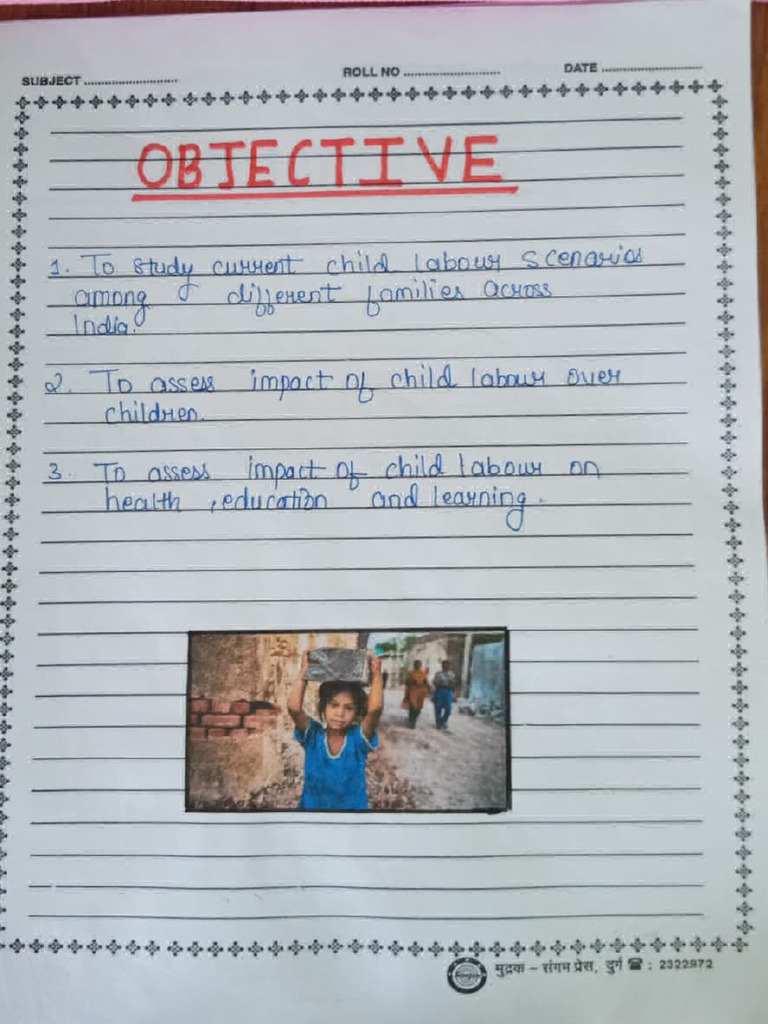 SUBJECT ..........................
ROLL NO ..........................
DATE ..........................
OBJECTIVE
1. To study current child labour scenarios
among different families across
India.
2. To assess impact of child labour over
children.
3. To assess impact of child labour on
health, education and learning.
मुद्रक – संगम प्रेस, दुर्ग ☎ : 2322972